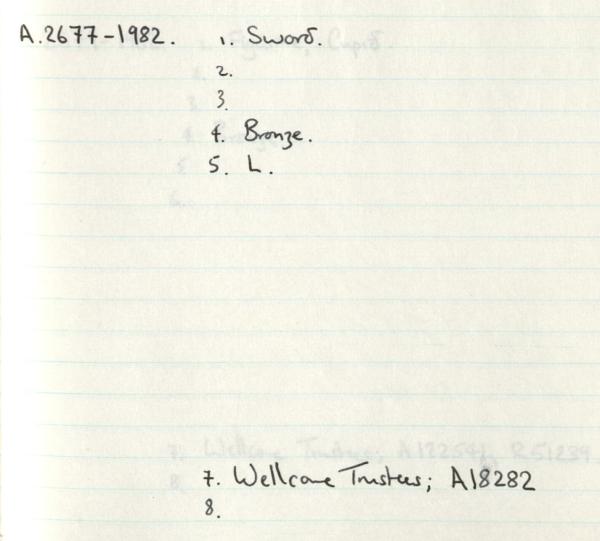 A.2677-1982. 1. Sword.
2.
3.
4. Bronze.
5. L.
7. Wellcome Trustees; A18282
8.